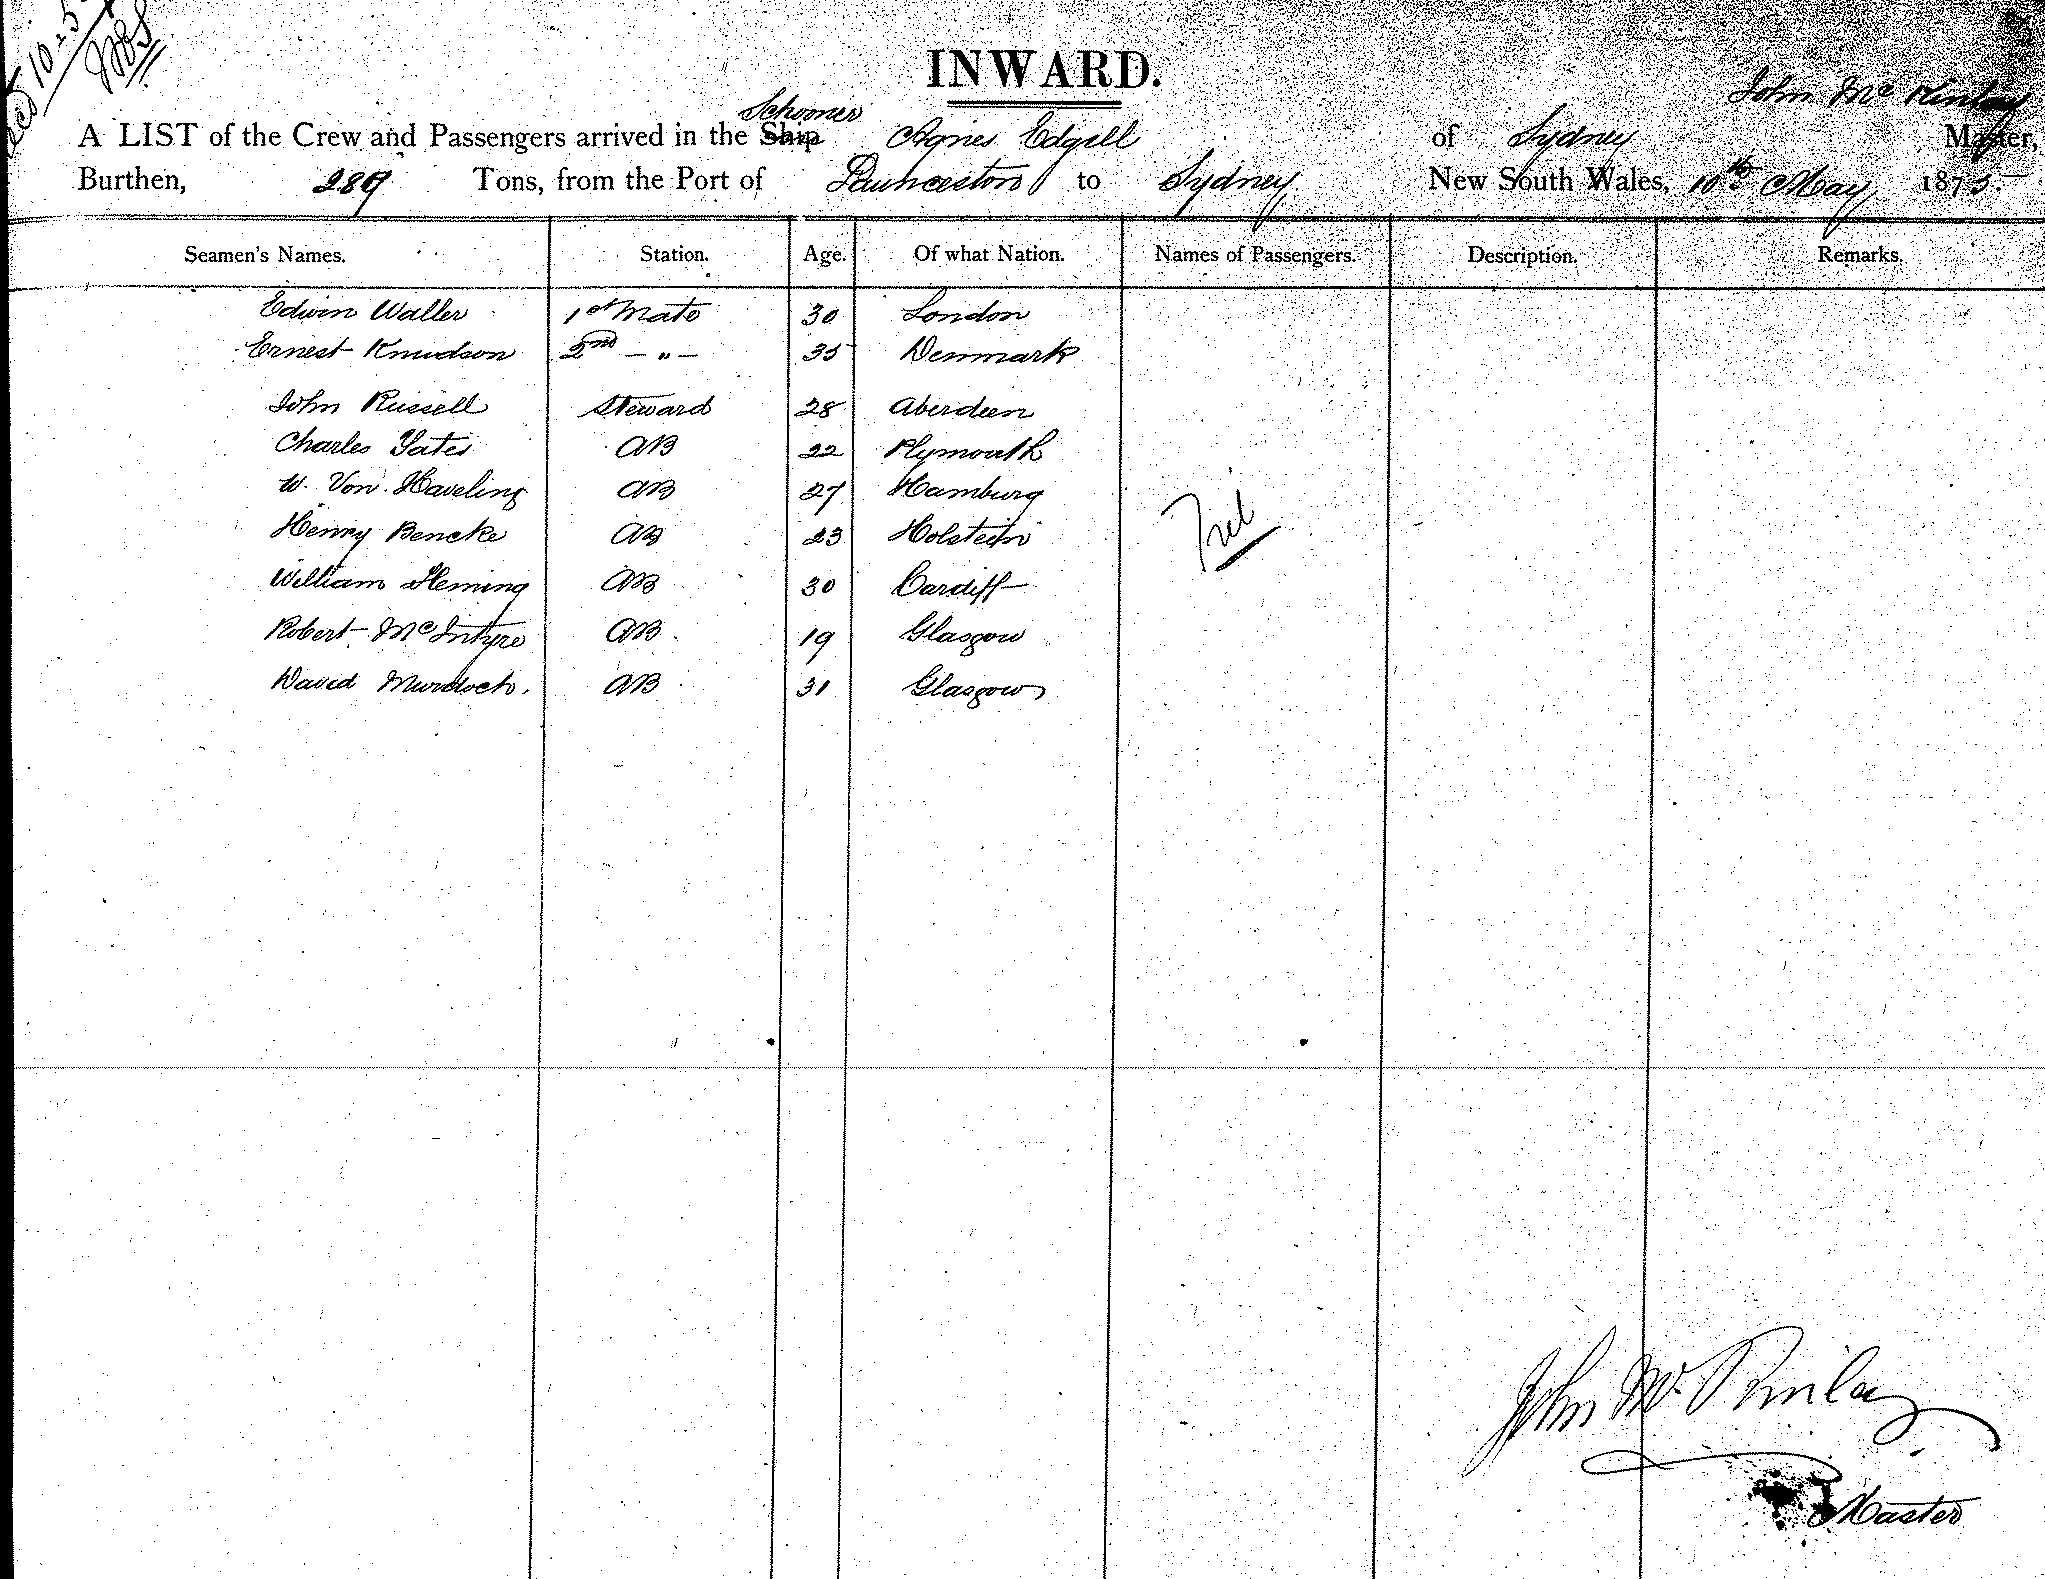 10-5-
INWARD.
John Mc Kinlay
Schooner
A LIST of the Crew and Passengers arrived in the Ship Agnes Edgell of Sydney Master,
Burthen, 289 Tons, from the Port of Launceston to Sydney New South Wales, 10th May 1875.
Seamen's Names. Station. Age. Of what Nation. Names of Passengers. Description. Remarks.
Edwin Waller 1st Mate 30 London
Ernest Knudson 2nd — " — 35 Denmark
John Russell Steward 28 Aberdeen
Charles Yates AB 22 Plymouth
W. Von. Haveling AB 27 Hamburg
Henry Bencke AB 23 Holstein
Nil
William Fleming AB 30 Cardiff
Robert McIntyre AB 19 Glasgow
David Murdoch. AB 31 Glasgow
John Mc Kinlay
Master